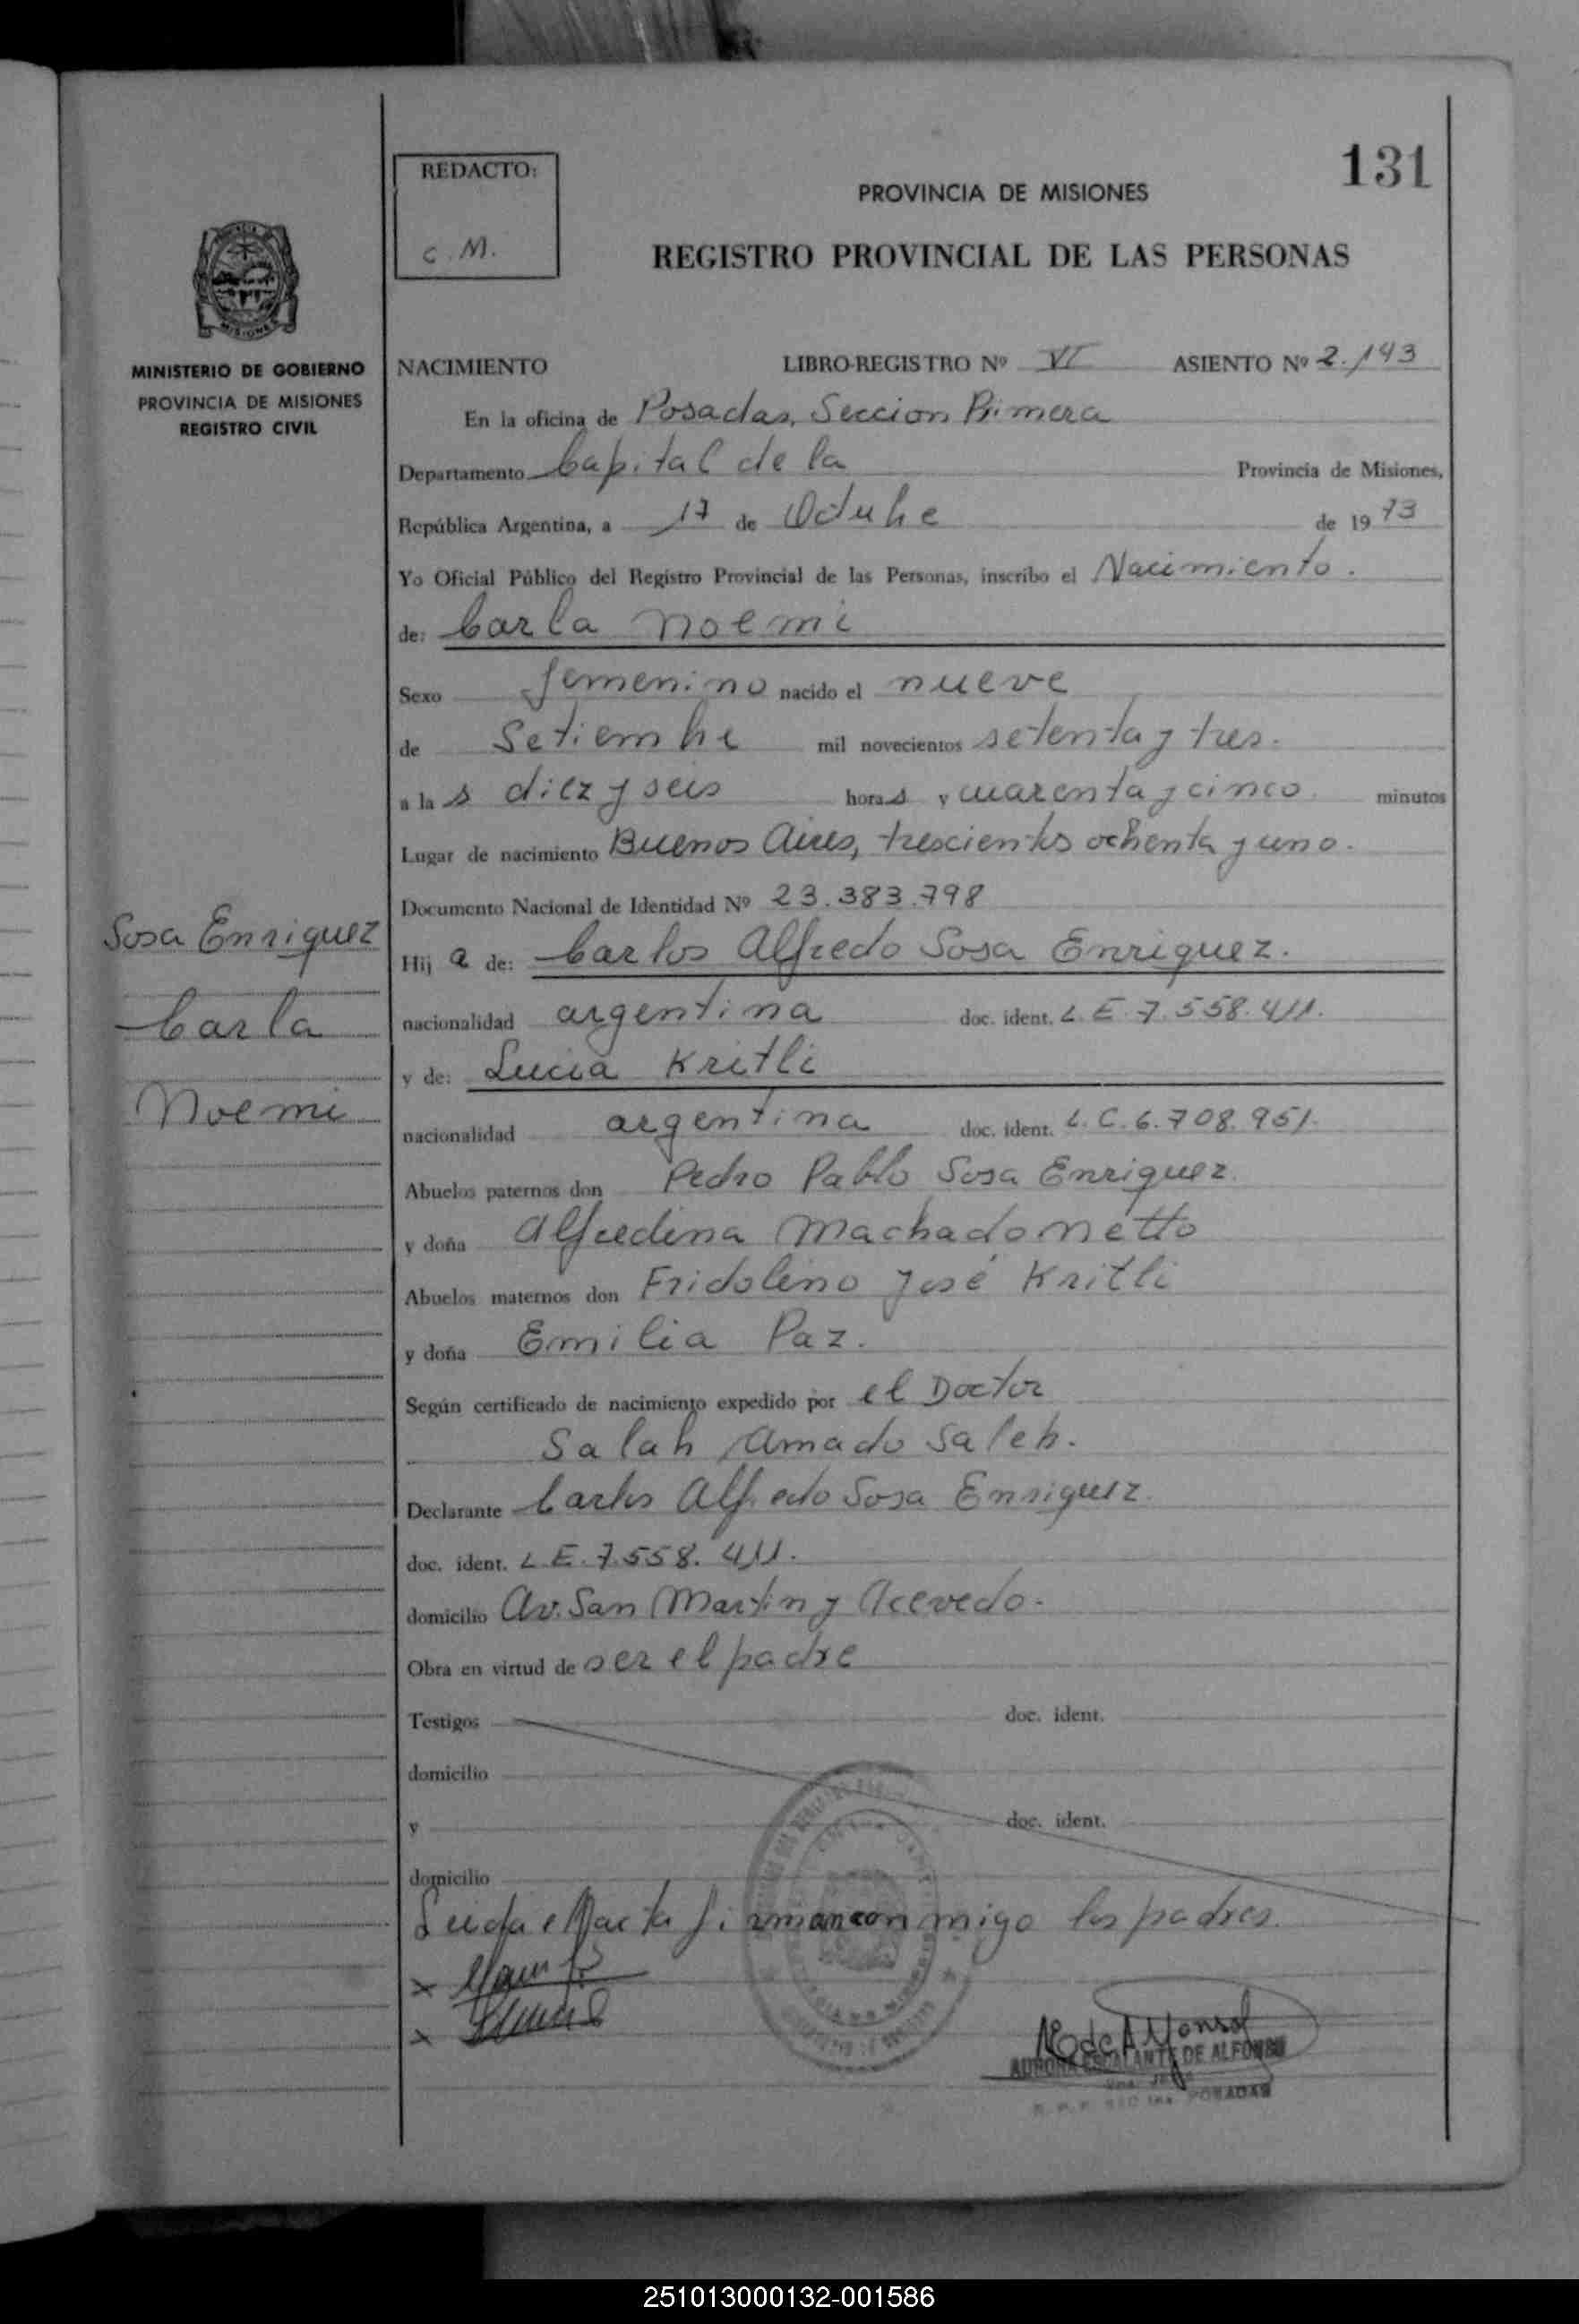 131
REDACTO:
C. M.
PROVINCIA DE MISIONES
REGISTRO PROVINCIAL DE LAS PERSONAS
MINISTERIO DE GOBIERNO
PROVINCIA DE MISIONES
REGISTRO CIVIL
NACIMIENTO LIBRO-REGISTRO Nº VI ASIENTO Nº 2.143
En la oficina de Posadas, Seccion Primera
Departamento Capital de la Provincia de Misiones,
República Argentina, a 17 de Octubre de 1973
Yo Oficial Público del Registro Provincial de las Personas, inscribo el Nacimiento.
de: Carla Noemi
Sexo femenino nacido el nueve
de Setiembre mil novecientos setenta y tres.
a las diez y seis horas y cuarenta y cinco minutos
Lugar de nacimiento Buenos Aires, trescientos ochenta y uno.
Documento Nacional de Identidad Nº 23.383.798
Hija de: Carlos Alfredo Sosa Enriquez.
nacionalidad argentina doc. ident. L.E. 7.558.411.
y de: Lucia Kritli
nacionalidad argentina doc. ident. L.C. 6.708.951.
Abuelos paternos don Pedro Pablo Sosa Enriquez.
y doña Alfredina Machado Netto
Abuelos maternos don Fridolino José Kritli
y doña Emilia Paz.
Según certificado de nacimiento expedido por el Doctor
Salah Amado Saleh.
Declarante Carlos Alfredo Sosa Enriquez.
doc. ident. L.E. 7.558.411.
domicilio Av. San Martin y Acevedo.
Obra en virtud de ser el padre
Testigos doc. ident.
domicilio
y doc. ident.
domicilio
Leida el Acta firman conmigo los padres.
Sosa Enriquez
Carla
Noemi
AURORA ESCALANTE DE ALFONSO
POSADAS
251013000132-001586